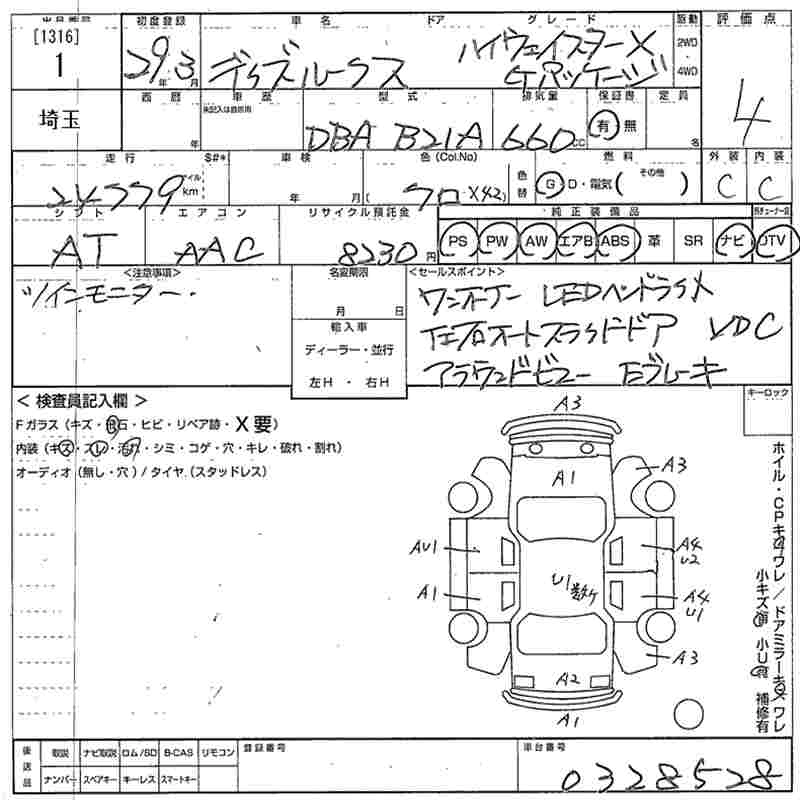 [1316]
1
初度登録
29年3月
車名
デイズルークス
ドア
グレード
ハイウェイスターX
Gパッケージ
駆動
2WD
4WD
評価点
4
埼玉
西暦
年
車歴
未記入は自家用
型式
DBA B21A
排気量
660cc
保証書
有 無
定員
名
走行
24779
マイル
km
S#*
車検
年 月
色(Col.No)
クロ(X42)
色替
燃料
G・D・電気( その他 )
外装
C
内装
C
シフト
AT
エアコン
AAC
リサイクル預託金
8230円
純正装備品
PS PW AW エアB ABS 革 SR ナビ DTV
<注意事項>
ツインモニター.
名変期限
月 日
輸入車
ディーラー・並行
左H ・ 右H
<セールスポイント>
ワンオーナー LEDヘッドライト
左右オートスライドドア VDC
アラウンドビュー Eブレーキ
< 検査員記入欄 >
Fガラス(キズ・飛石・ヒビ・リペア跡・X要)
内装(キズ・スレ・汚れ・シミ・コゲ・穴・キレ・破れ・割れ)
オーディオ(無し・穴)/タイヤ.(スタッドレス)
キーロック
A3
A1
A3
AU1
A4
U2
U1
A1
A4
U1
A3
A2
A1
ホイル・CPキズワレ/ドアミラーキズワレ
小キズ有 小U有 補修有
後送品
取説 ナビ取説 ロム/SD B-CAS リモコン
ナンバー スペアキー キーレス スマートキー
登録番号
車台番号
0328528